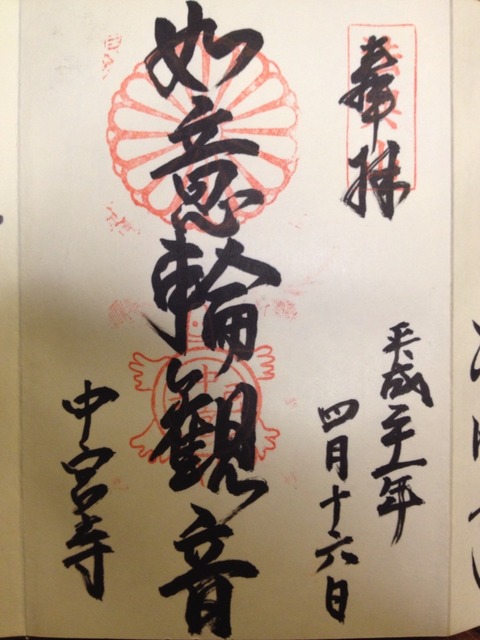 奉拝
平成二十一年
四月十六日
如意輪観音
中宮寺